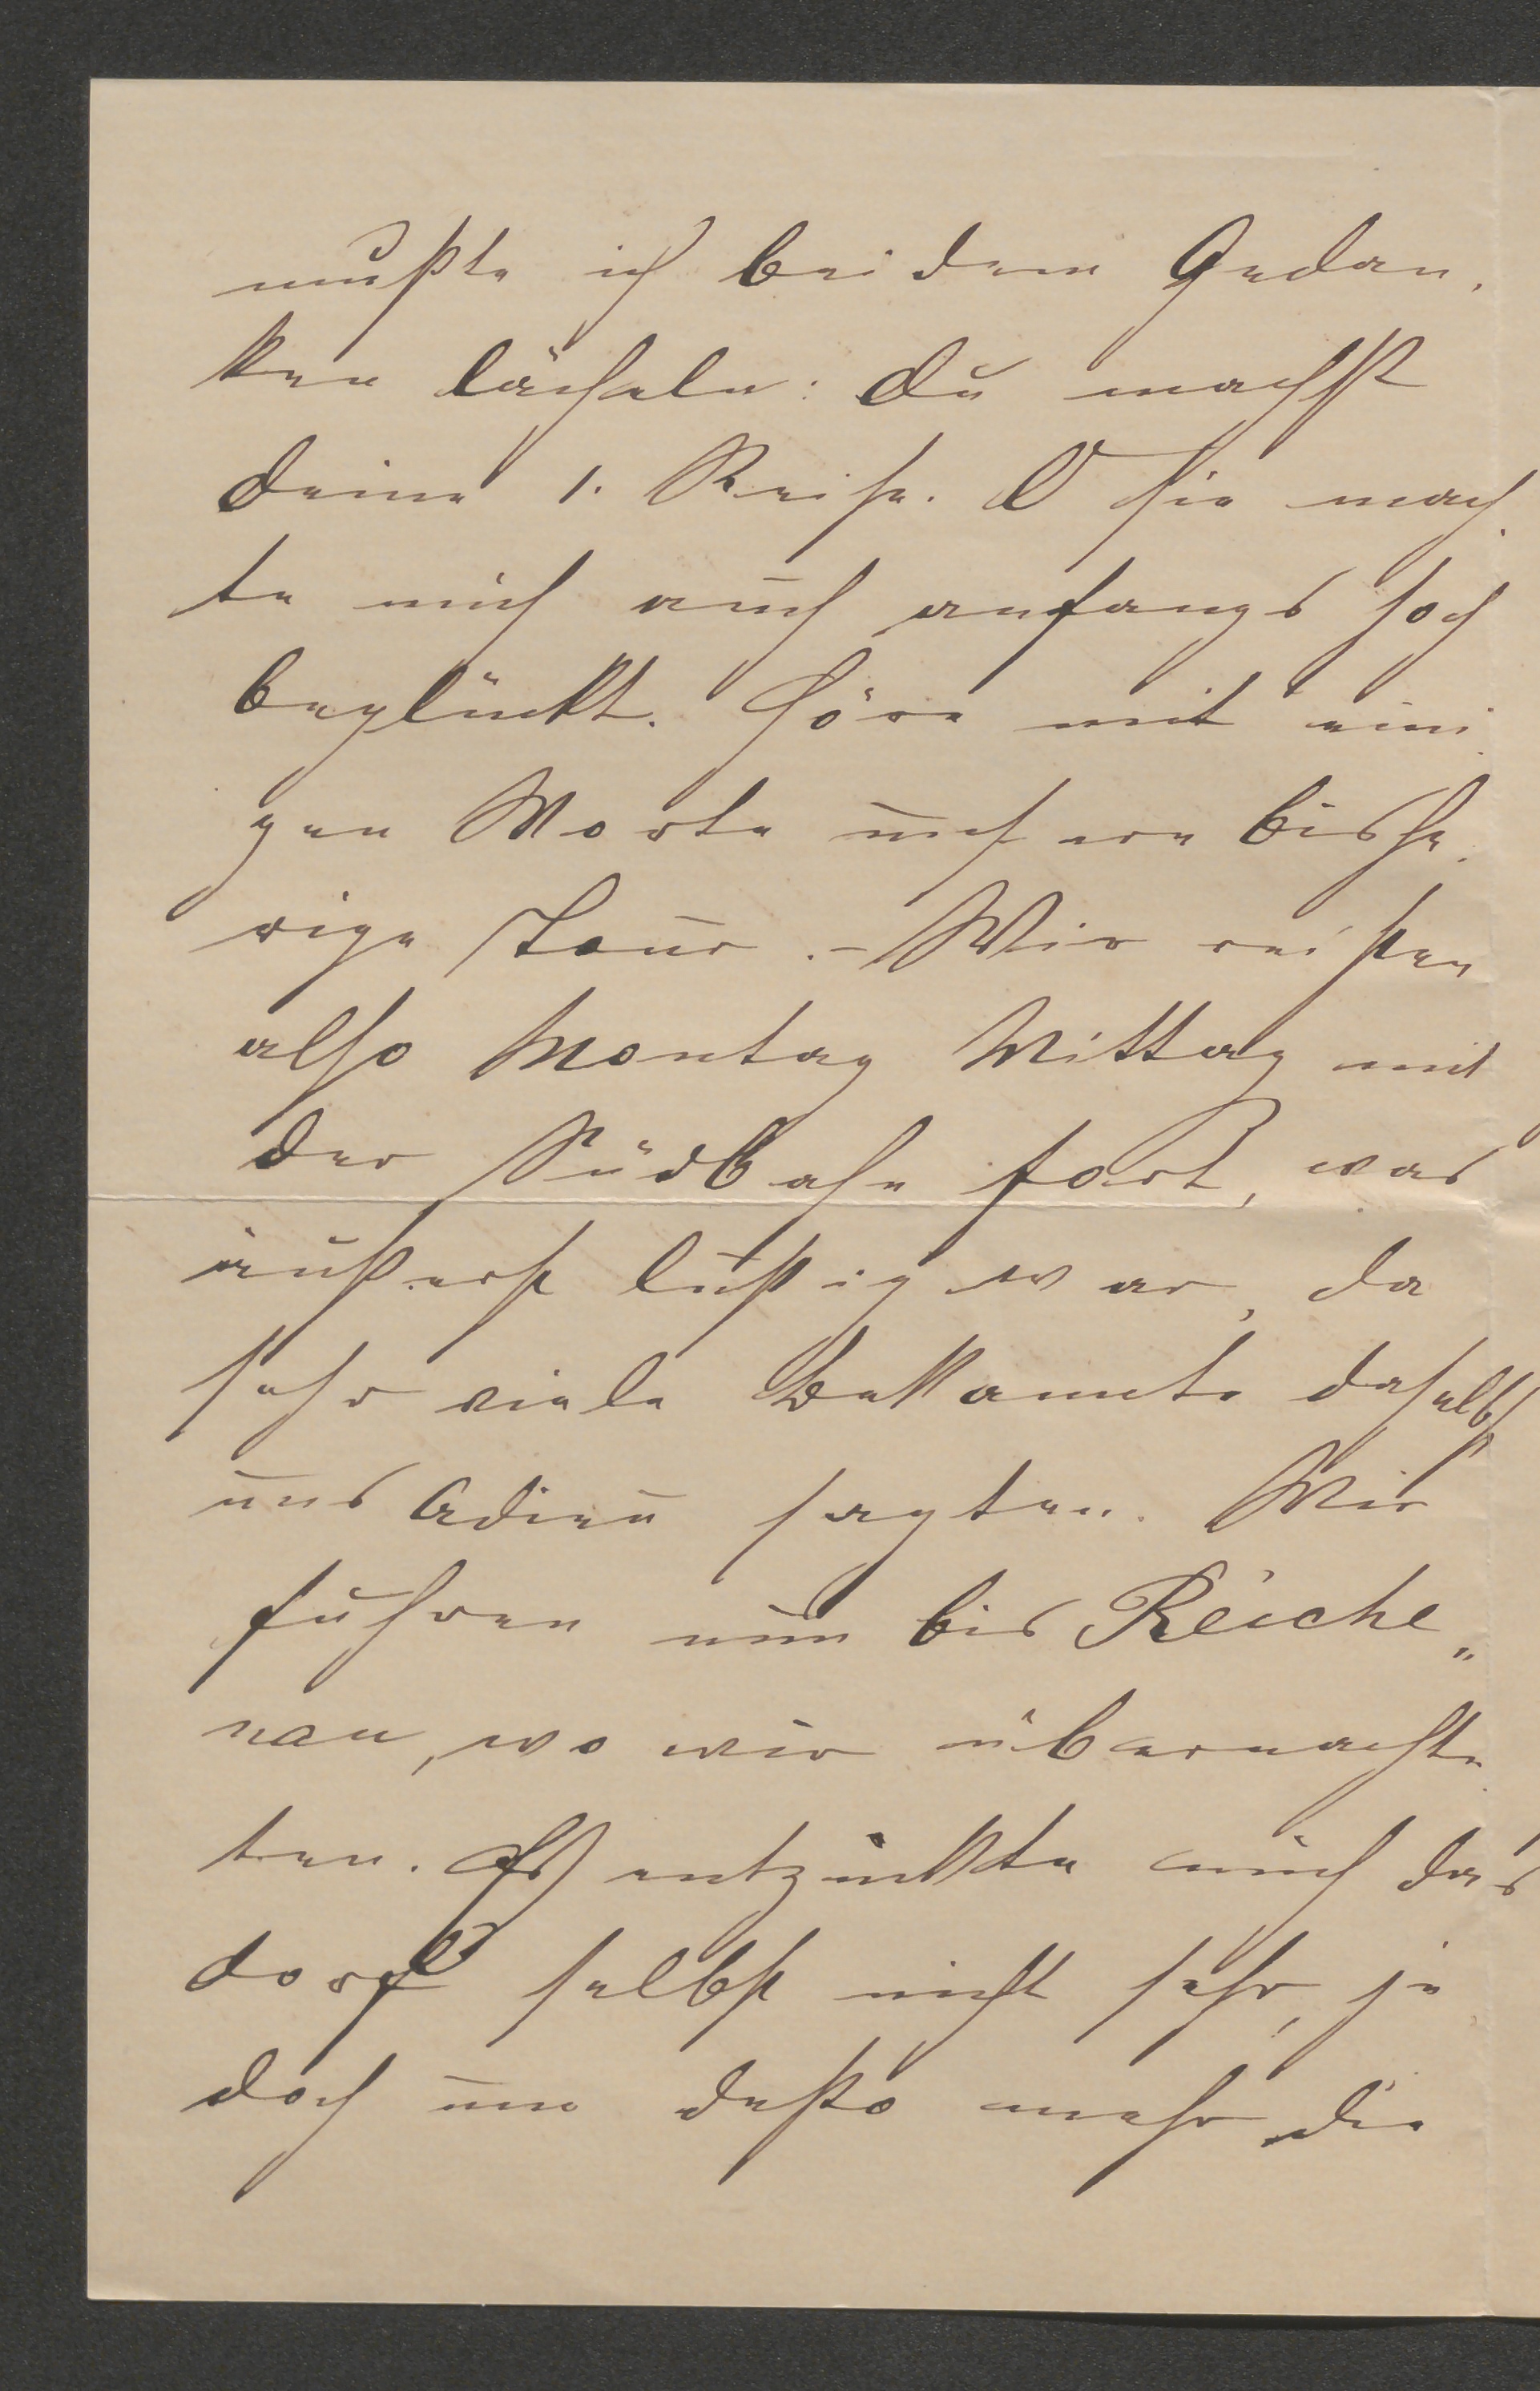 mußte ich bei dem Gedan-
ken lächeln: Du machst
Deine 1. Reise. O sie mach-
te mich auch anfangs hoch
beglückt. Höre mit eini-
gen Worte unsere bishe-
rige Tour. - Wir reisten
also Montag Mittag mit
der Südbahn fort, was
äußerst lustig war, da
sehr viele Bekannte daselbst
uns Adieu sagten. Wir
fuhren nun bis Reiche„
nau, wo wir übernachte-
ten. Es entzückte mich das
Dorf selbst nicht sehr, je
doch um desto mehr die